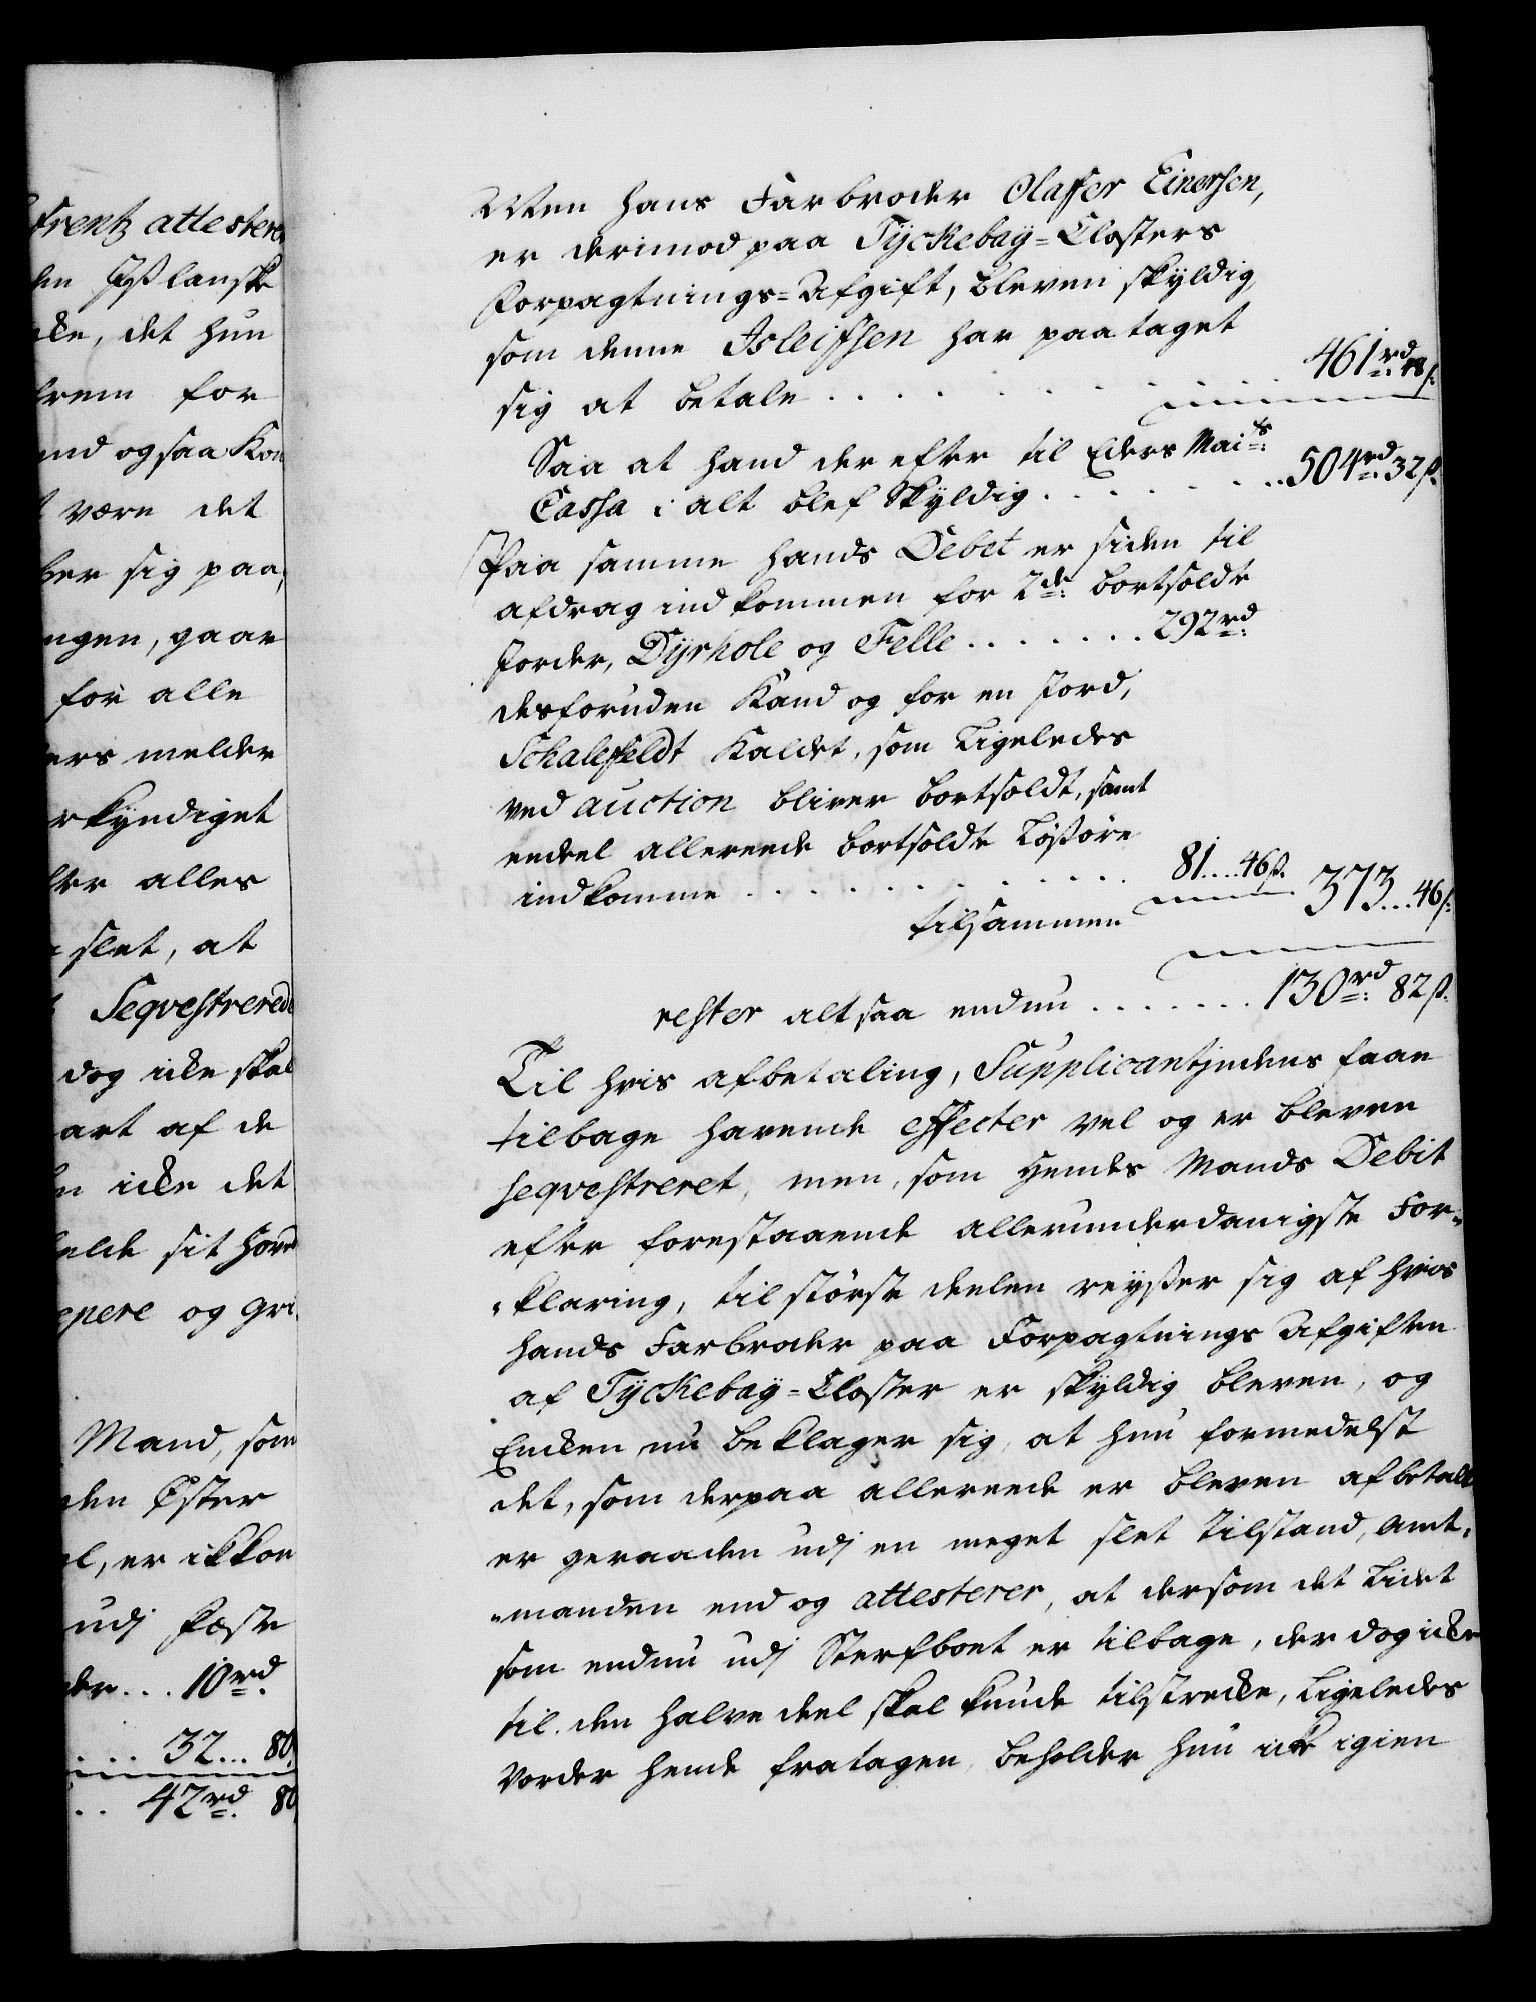 Frentz attesterer
den Ißlanske
icke, det hun
frem for
end ogsaa Kon
være det
ber sig paa,
ngen, gaar
for alle
ers melder
rkyndiget
ter alles
slet, at
Seqvestrerede
dog icke skal
art af de
n icke det
elde sit Hoved
epere og gri
Mand, som
den Øster
el, er ikkon
udj fæste
der... 10rd.
.... 32... 80
.. 42rd. 80
Men hans Farbroder Olaffer Einersen,
er derimod paa Tyckebay-Closters
Forpagtnings-Afgift, bleven skyldig
som denne Isleifsen har paataget
sig at betale . . . . . . . 461rd. 48ß.
Saa at hand derefter til Eders Maits.
Cassa i alt blef skyldig . . . . . . . 504rd. 32ß.
Paa samme hands Debet er siden til
afdrag indkommen for 2de. bortsoldte
Jorder, Dyrhole og Felle . . . . . . . 292rd.
desforuden kand og for en Jord,
Schalefeldt kaldet, som ligeledes
ved auction bliver bortsoldt, samt
endeel allereede bortsoldte Løsøre
indkomme . . . . . . . . . . . 81....46ß.
tilsammen 373...46ß.
rester altsaa endnu . . . . . . . 130rd. 82ß.
Til hvis afbetaling, Supplicantindens faae
tilbage havende effecter vel og er bleven
seqvestreret, men, som hendes Mands Debit
efter forestaaende allerunderdanigste For-
-klaring, til største deelen reyßer sig af hvis
hands Farbroder paa Forpagtnings Afgiften
af Tyckebay-Closter er skyldig bleven, og
Encken nu beklager sig, at hun formedelst
det, som derpaa allereede er bleven afbetalt
er geraaden udj en meget slet tilstand, Amt-
-manden end og attesterer, at dersom det lidet
som endnu udj Sterfboet er tilbage, der dog icke
til den halve deel skal kunde tilstrecke, ligeledes
vorder hende fratagen, beholder hun icke igien